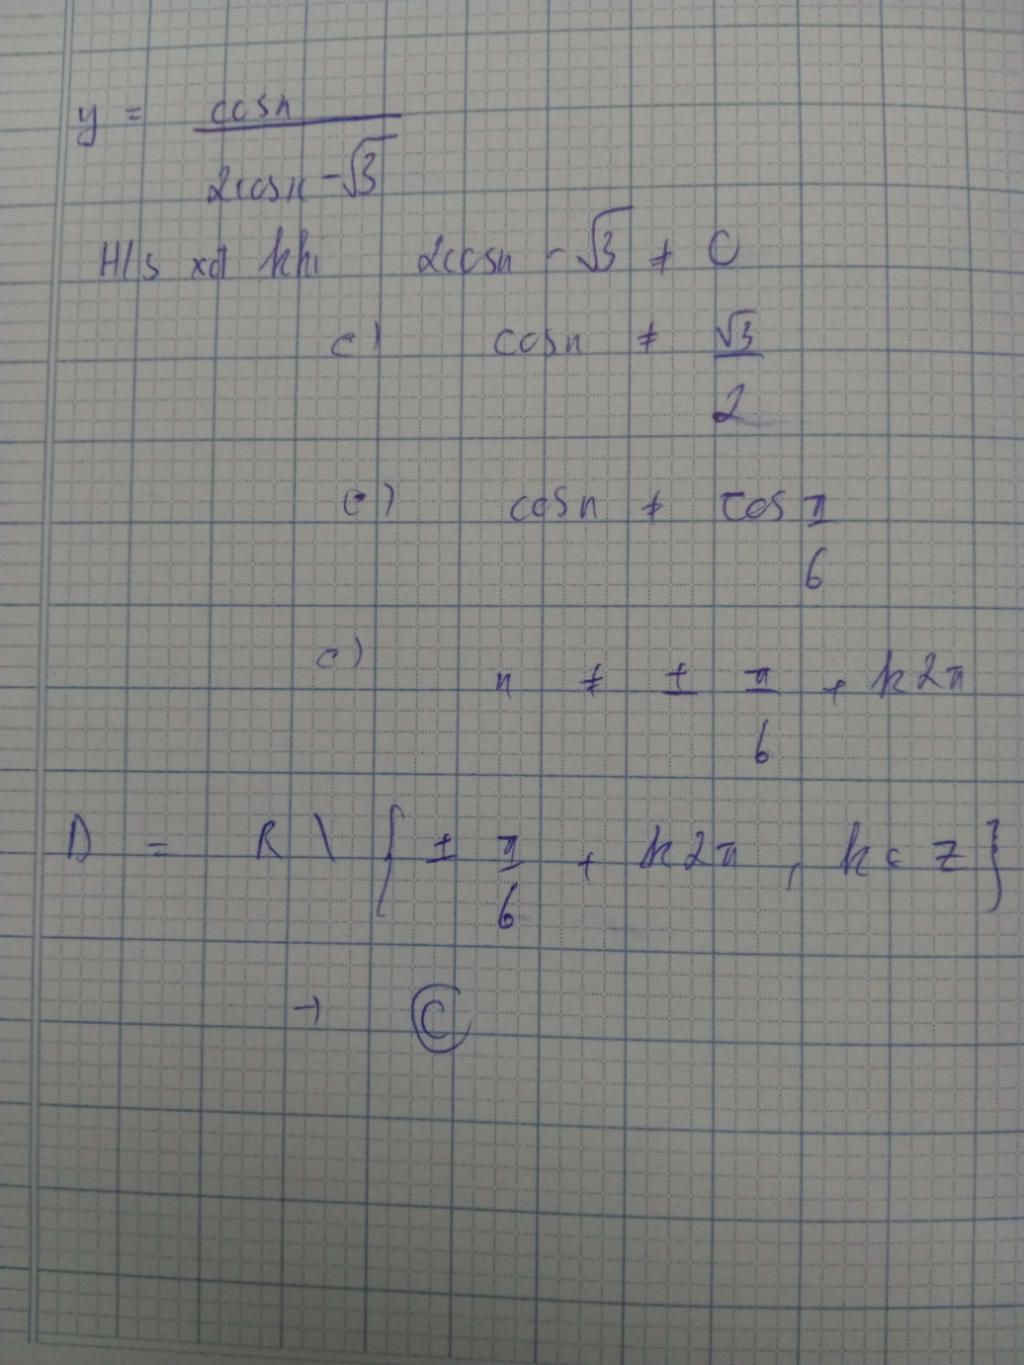 y = cosx / (2cosx - √3)
H/s xđ khi 2cosx - √3 ≠ 0
<=> cosx ≠ √3/2
<=> cosx ≠ cos π/6
<=> x ≠ ± π/6 + k2π
D = R \ { ± π/6 + k2π , k ∈ Z }
→ C